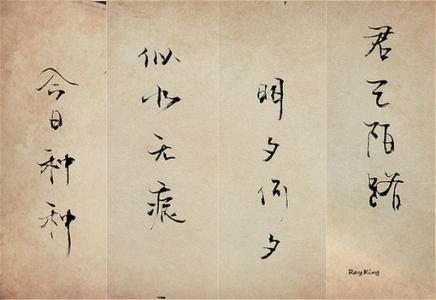 今日种种
似水无痕
明夕何夕
君已陌路
RayKing